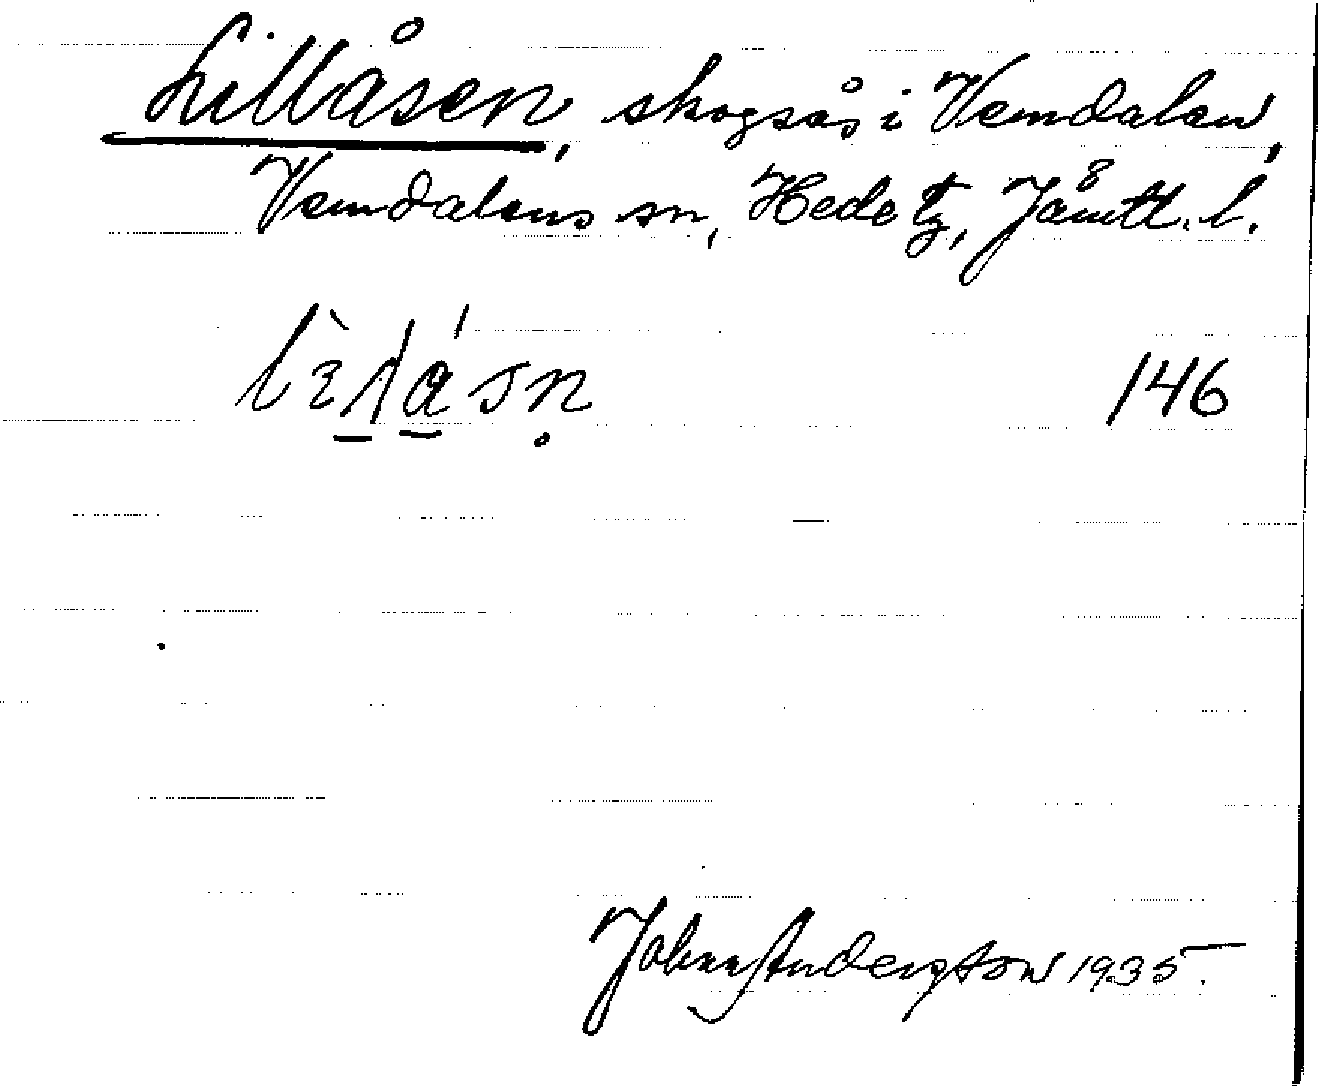 Lillåsen, skogsås i Vemdalen,
Vemdalens sn, Hede tg, Jämtl. l.
146
John Andersson 1935.